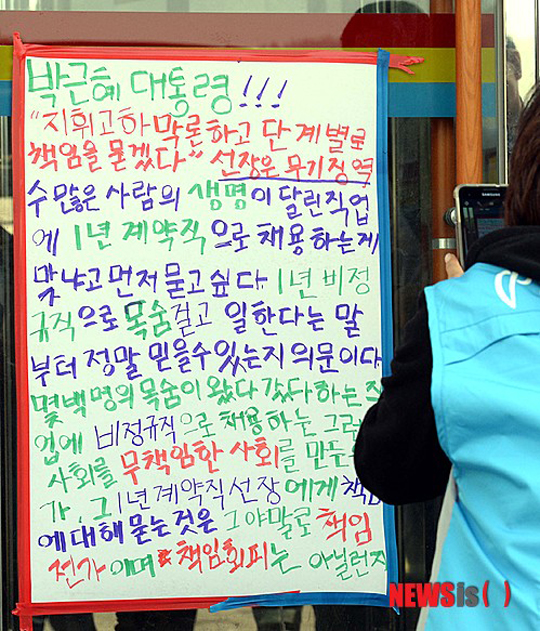 박근혜 대통령!!!
"지휘고하 막론하고 단계별로
책임을 묻겠다" 선장은 무기징역
수많은 사람의 생명이 달린직업
에 1년 계약직으로 채용하는게
맞냐고 먼저 묻고싶다. 1년 비정
규직으로 목숨걸고 일한다는 말
부터 정말 믿을수 있는지 의문이다
몇백명의 목숨이 왔다 갔다하는 직
업에 비정규직으로 채용하는 그런
사회를 무책임한 사회를 만든
가, 그 1년계약직선장에게 책임
에대해 묻는것은 그야말로 책임
전가 이며 책임회피는 아닐런지
NEWSis( )